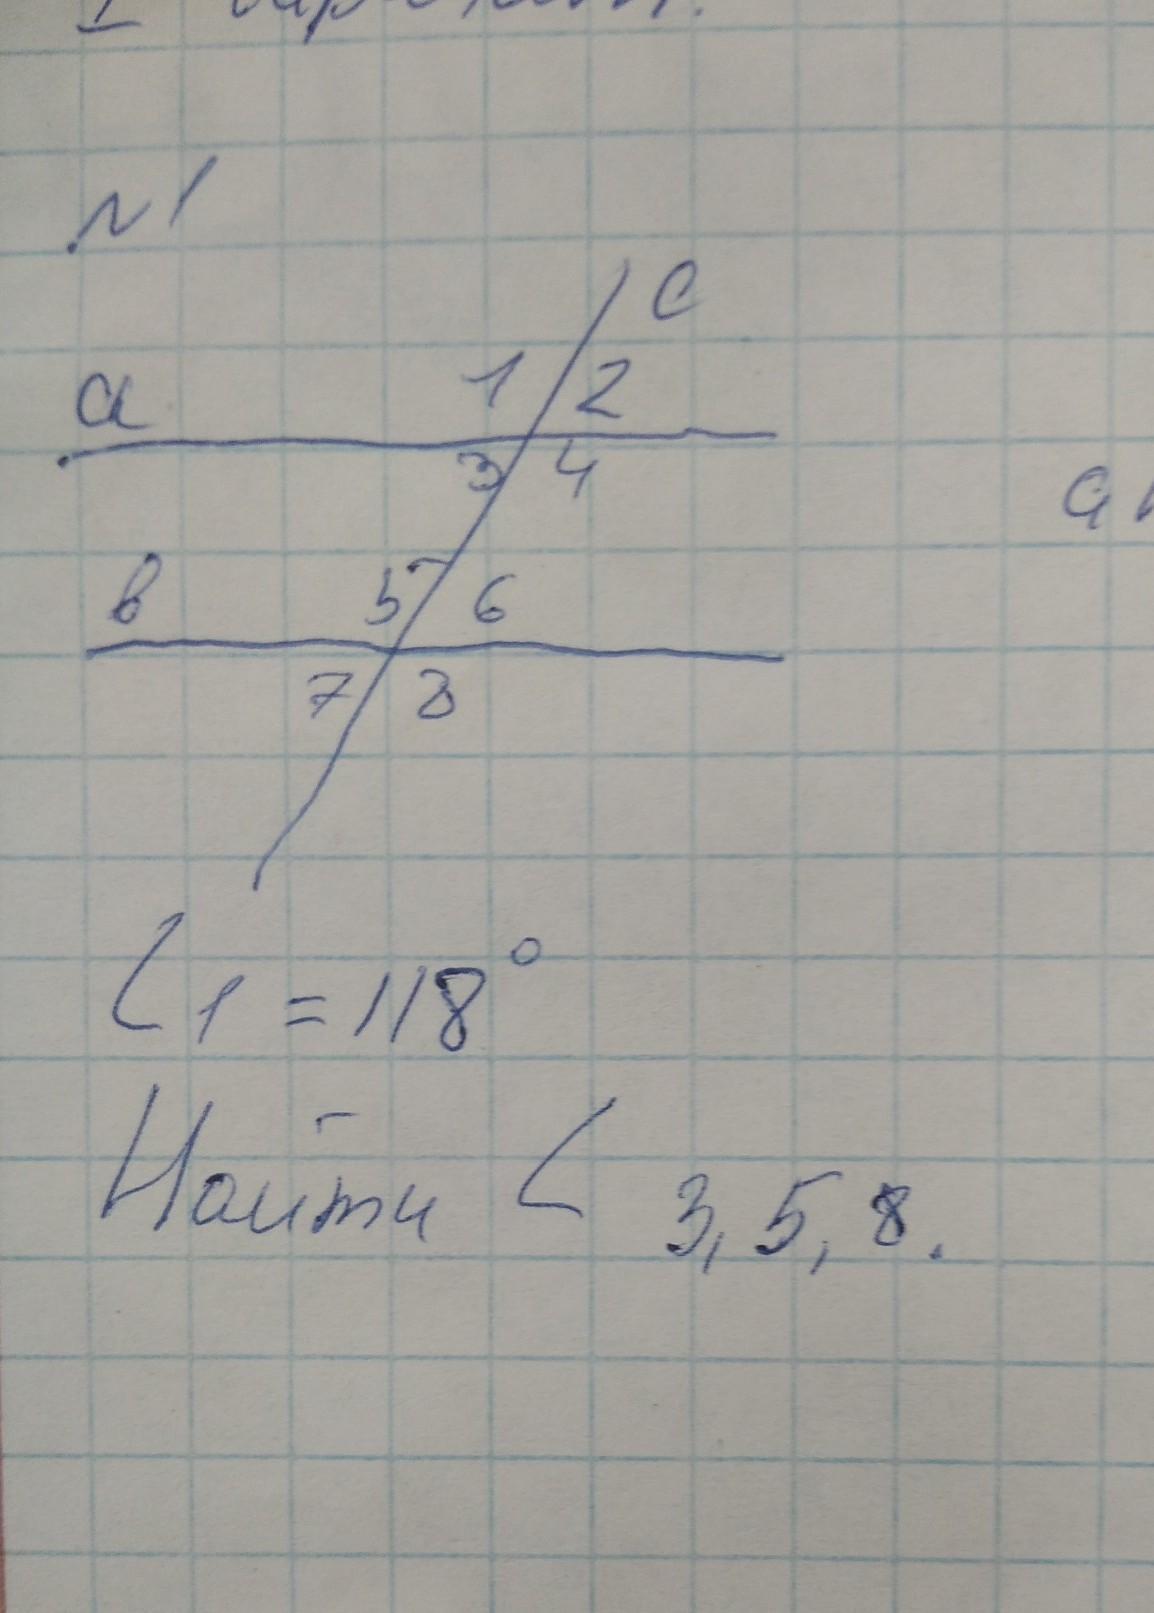 №1
c
a 1 2
3 4
в 5 6
7 8
∠1 = 118°
Найти ∠ 3, 5, 8.